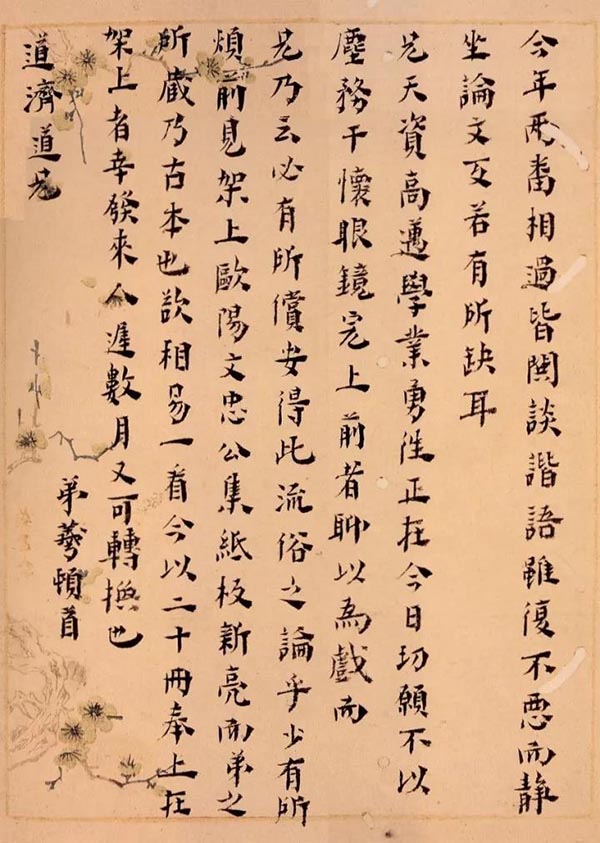 今年两番相過皆閒談諧語雖復不惡而靜
坐論文反若有所缺耳
兄天資高邁學業勇往正在今日切願不以
塵務干懷眼鏡完上前者聊以為戲而
兄乃云必有所償安得此流俗之論乎少有所
煩前見架上歐陽文忠公集紙板新亮而弟之
所藏乃古本也欲相易一看今以二十冊奉上在
架上者幸發來人遲數月又可轉換也
道濟道兄
弟頓首